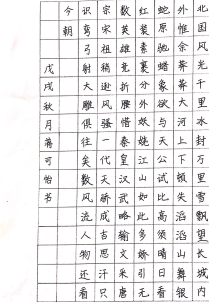 北国风光千里冰封万里雪飘望长城内
外惟余莽莽大河上下顿失滔滔山舞银
蛇原驰蜡象欲与天公试比高须晴日看
红装素裹分外妖娆江山如此多娇引无
数英雄竞折腰惜秦皇汉武略输文采唐
宗宋祖稍逊风骚一代天骄成吉思汗只
识弯弓射大雕俱往矣数风流人物还看
今朝
戊戌秋月蒋可怡书